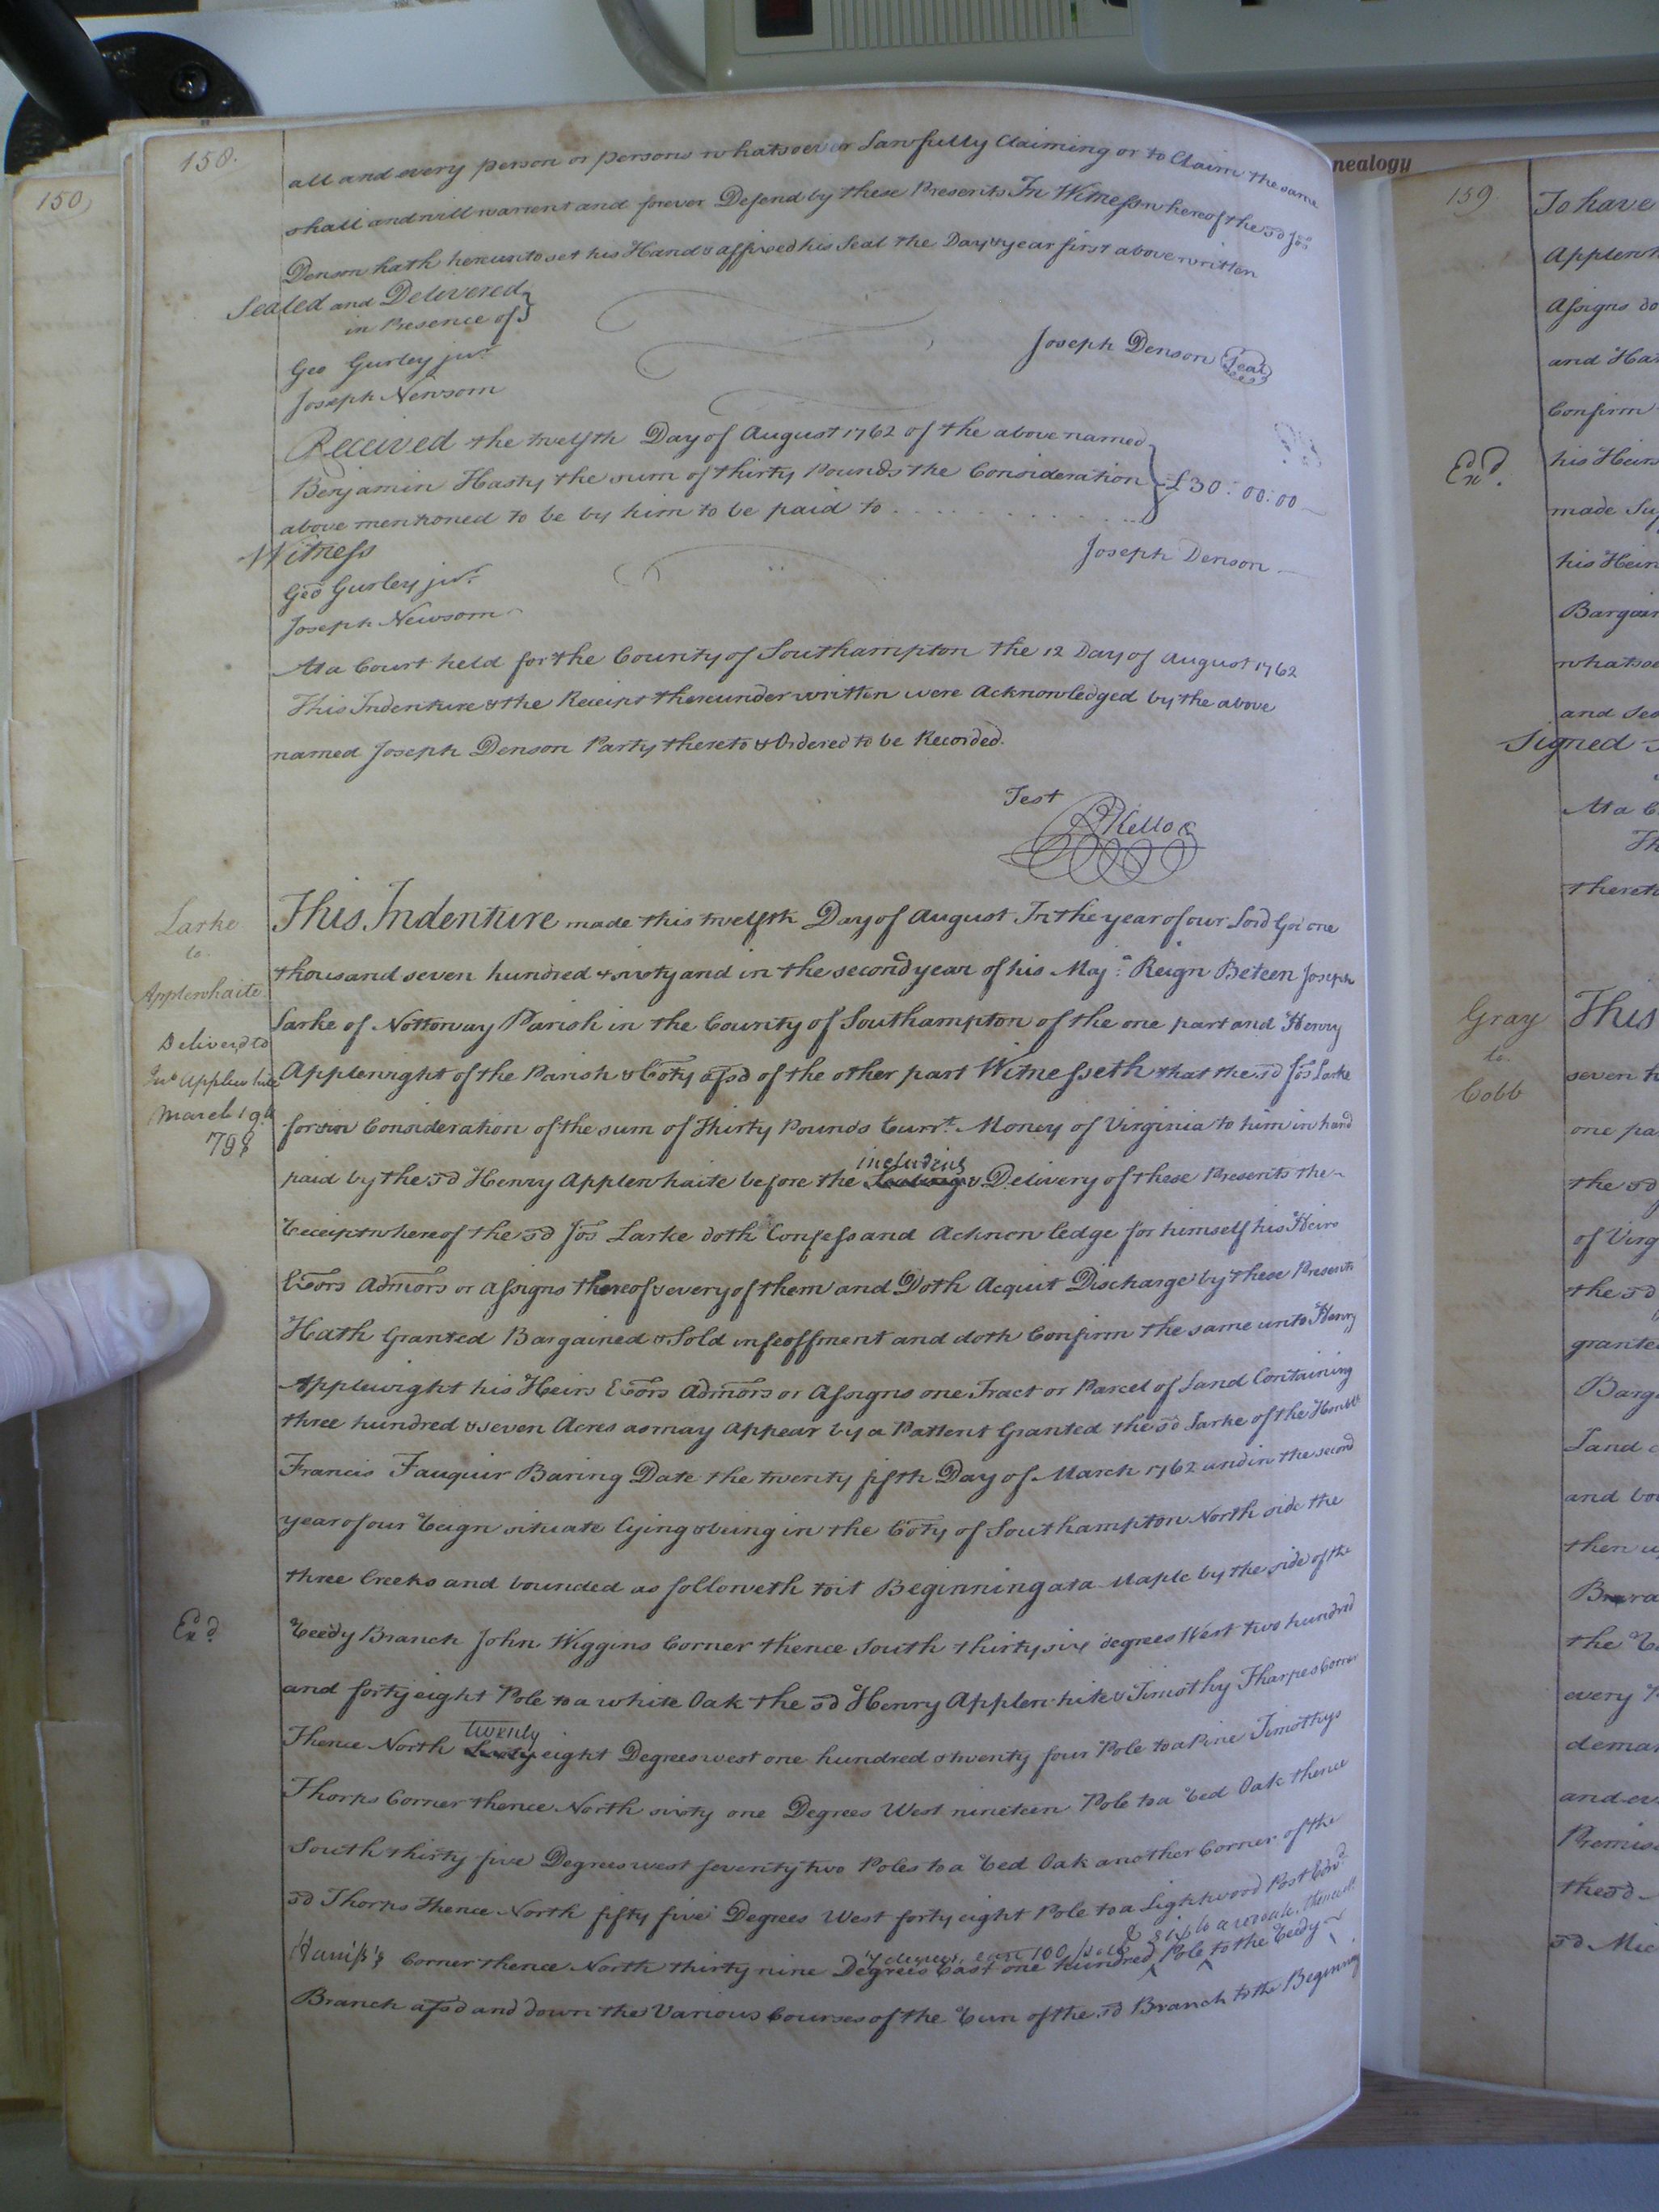 nealogy
150
158.
all and every person or persons whatsoever Lawfully Claiming or to Claim the same
shall and will warrent and forever Defend by these Presents In Witness whereof the sd Jos
Denson hath hereunto set his Hand & affixed his Seal the Day & year first above written
Sealed and Delivered
in Presence of
Joseph Denson Seal
Geo Gurley junr
Joseph Newsom
Received the twelfth Day of August 1762 of the above named
Benjamin Hasty the sum of thirty Pounds the Consideration £30:00:00
above mentioned to be by him to be paid to
Witness
Joseph Denson
Geo Gurley junr
Joseph Newsom
At a Court held for the County of Southampton the 12 Day of August 1762
This Indenture & the Receipt thereunder written were Acknowledged by the above
named Joseph Denson Party thereto & Ordered to be Recorded.
Test
RKello
Larke
to
Applewhaite
Deliver,d to
Applewhite
March 19th
798
This Indenture made this twelfth Day of August In the year of our Lord God one
thousand seven hundred & sixty and in the second year of his Maj:s Reign Beteen Joseph
Larke of Nottoway Parish in the County of Southampton of the one part and Henry
Applewight of the Parish & Coty afsd of the other part Witnesseth that the sd Jos Larke
for & in Consideration of the sum of Thirty Pounds Currt. Money of Virginia to him in hand
paid by the sd Henry Applewhaite before the including & Delivery of these Presents the
Receipt whereof the sd Jos Larke doth Confess and Acknowledge for himself his Heirs
Exors Admors or Assigns thereof & every of them and Doth Acquit Discharge by these Presents
Hath Granted Bargained & Sold infeoffment and doth Confirm the same unto Henry
Applewight his Heirs Exors Admors or Assigns one Tract or Parcel of Land Containing
three hundred & seven Acres as may Appear by a Pattent Granted the sd Larke of the Honble
Francis Fauquir Baring Date the twenty fifth Day of March 1762 and in the second
year of our Reign situate lying & being in the Coty of Southampton North side the
three Creeks and bounded as followeth toit Beginning at a Maple by the side of the
Exd.
Reedy Branch John Wiggins Corner thence South thirty six degrees West two hundred
and forty eight Pole to a white Oak the sd Henry Applewhite & Timothy Tharpes Corner
Thence North twenty eight Degrees west one hundred & twenty four Pole to a Pine Timothys
Thorps Corner thence North sixty one Degrees West nineteen Pole to a Red Oak thence
South thirty five Degrees west seventy two Poles to a Red Oak another Corner of the
sd Thorps Thence North fifty five Degrees West forty eight Pole to a Lightwood Post Edwd.
Harriss's Corner thence North thirty nine Degrees East one hundred & six Pole to the Reedy
Branch afsd and down the Various Courses of the Run of the sd Branch to the Beginning
159.
To have
Applewh
Assigns do
and Ha
Confirm
Exd.
his Heirs
made Su
his Heir
Bargain
whatsoe
and Sea
Signed
At a C
Th
thereto
Gray
to
Cobb
This
seven h
one pa
the sd
of Virg
the sd
grante
Barg
Land
and bo
then u
the
every
deman
and ev
Premis
the sd
sd Mic